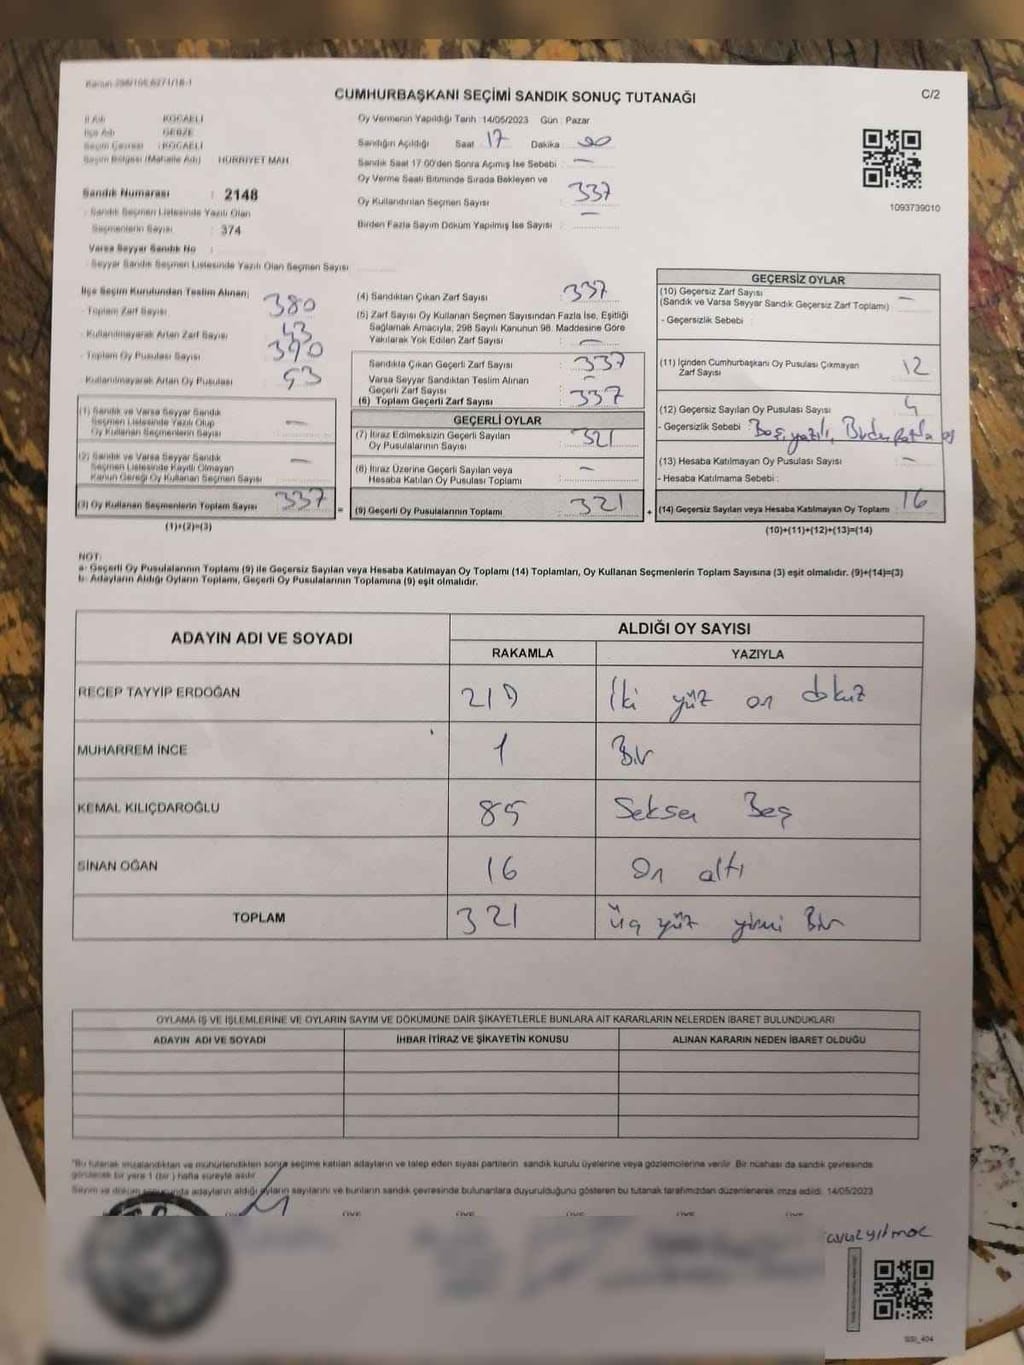 Kanun 298/105,6271/18-1
CUMHURBAŞKANI SEÇİMİ SANDIK SONUÇ TUTANAĞI
C/2
İl Adı : KOCAELİ
İlçe Adı : GEBZE
Seçim Çevresi : KOCAELİ
Seçim Bölgesi (Mahalle Adı) : HÜRRİYET MAH.
Sandık Numarası : 2148
Sandık Seçmen Listesinde Yazılı Olan
Seçmenlerin Sayısı : 374
Varsa Seyyar Sandık No :
Seyyar Sandık Seçmen Listesinde Yazılı Olan Seçmen Sayısı
Oy Vermenin Yapıldığı Tarih : 14/05/2023 Gün : Pazar
Sandığın Açıldığı Saat 17 Dakika 00
Sandık Saat 17:00'den Sonra Açılmış İse Sebebi : —
Oy Verme Saati Bitiminde Sırada Bekleyen ve
Oy Kullandırılan Seçmen Sayısı 337
Birden Fazla Sayım Döküm Yapılmış İse Sayısı : —
1093739010
İlçe Seçim Kurulundan Teslim Alınan;
- Toplam Zarf Sayısı 380
- Kullanılmayarak Artan Zarf Sayısı 43
- Toplam Oy Pusulası Sayısı 390
- Kullanılmayarak Artan Oy Pusulası 53
(1) Sandık ve Varsa Seyyar Sandık
Seçmen Listesinde Yazılı Olup
Oy Kullanan Seçmenlerin Sayısı —
(2) Sandık ve Varsa Seyyar Sandık
Seçmen Listesinde Kayıtlı Olmayan
Kanun Gereği Oy Kullanan Seçmen Sayısı —
(3) Oy Kullanan Seçmenlerin Toplam Sayısı 337
(1)+(2)=(3)
(4) Sandıktan Çıkan Zarf Sayısı : 337
(5) Zarf Sayısı Oy Kullanan Seçmen Sayısından Fazla İse, Eşitliği
Sağlamak Amacıyla, 298 Sayılı Kanunun 98. Maddesine Göre
Yakılarak Yok Edilen Zarf Sayısı : —
Sandıkta Çıkan Geçerli Zarf Sayısı : 337
Varsa Seyyar Sandıktan Teslim Alınan
Geçerli Zarf Sayısı : —
(6) Toplam Geçerli Zarf Sayısı : 337
GEÇERLİ OYLAR
(7) İtiraz Edilmeksizin Geçerli Sayılan
Oy Pusulasının Sayısı : 321
(8) İtiraz Üzerine Geçerli Sayılan veya
Hesaba Katılan Oy Pusulası Toplamı : —
= (9) Geçerli Oy Pusulalarının Toplamı : 321
GEÇERSİZ OYLAR
(10) Geçersiz Zarf Sayısı
(Sandık ve Varsa Seyyar Sandık Geçersiz Zarf Toplamı) : —
- Geçersizlik Sebebi :
(11) İçinden Cumhurbaşkanı Oy Pusulası Çıkmayan
Zarf Sayısı : 12
(12) Geçersiz Sayılan Oy Pusulası Sayısı : 4
- Geçersizlik Sebebi : Boş, yazılı, Birden fazla oy
(13) Hesaba Katılmayan Oy Pusulası Sayısı : —
- Hesaba Katılmama Sebebi :
+ (14) Geçersiz Sayılan veya Hesaba Katılmayan Oy Toplamı : 16
(10)+(11)+(12)+(13)=(14)
NOT:
a- Geçerli Oy Pusulalarının Toplamı (9) ile Geçersiz Sayılan veya Hesaba Katılmayan Oy Toplamı (14) Toplamları, Oy Kullanan Seçmenlerin Toplam Sayısına (3) eşit olmalıdır. (9)+(14)=(3)
b- Adayların Aldığı Oyların Toplamı, Geçerli Oy Pusulalarının Toplamına (9) eşit olmalıdır.
ADAYIN ADI VE SOYADI
ALDIĞI OY SAYISI
RAKAMLA YAZIYLA
RECEP TAYYİP ERDOĞAN 219 İki yüz on dokuz
MUHARREM İNCE 1 Bir
KEMAL KILIÇDAROĞLU 85 Seksen Beş
SİNAN OĞAN 16 On altı
TOPLAM 321 üç yüz yirmi Bir
OYLAMA İŞ VE İŞLEMLERİNE VE OYLARIN SAYIM VE DÖKÜMÜNE DAİR ŞİKAYETLERLE BUNLARA AİT KARARLARIN NELERDEN İBARET BULUNDUKLARI
ADAYIN ADI VE SOYADI İHBAR İTİRAZ VE ŞİKAYETİN KONUSU ALINAN KARARIN NEDEN İBARET OLDUĞU
"Bu tutanak imzalandıktan ve mühürlendikten sonra seçime katılan adayların ve talep eden siyasi partilerin sandık kurulu üyelerine veya gözlemcilerine verilir. Bir nüshası da sandık çevresinde
görülecek bir yere 1 (bir ) hafta süreyle asılır
Sayım ve döküm sonucunda adayların aldığı oyların sayılarını ve bunların sandık çevresinde bulunanlara duyurulduğunu gösteren bu tutanak tarafımızdan düzenlenerek imza edildi. 14/05/2023
ÜYE ÜYE ÜYE ÜYE ÜYE ÜYE